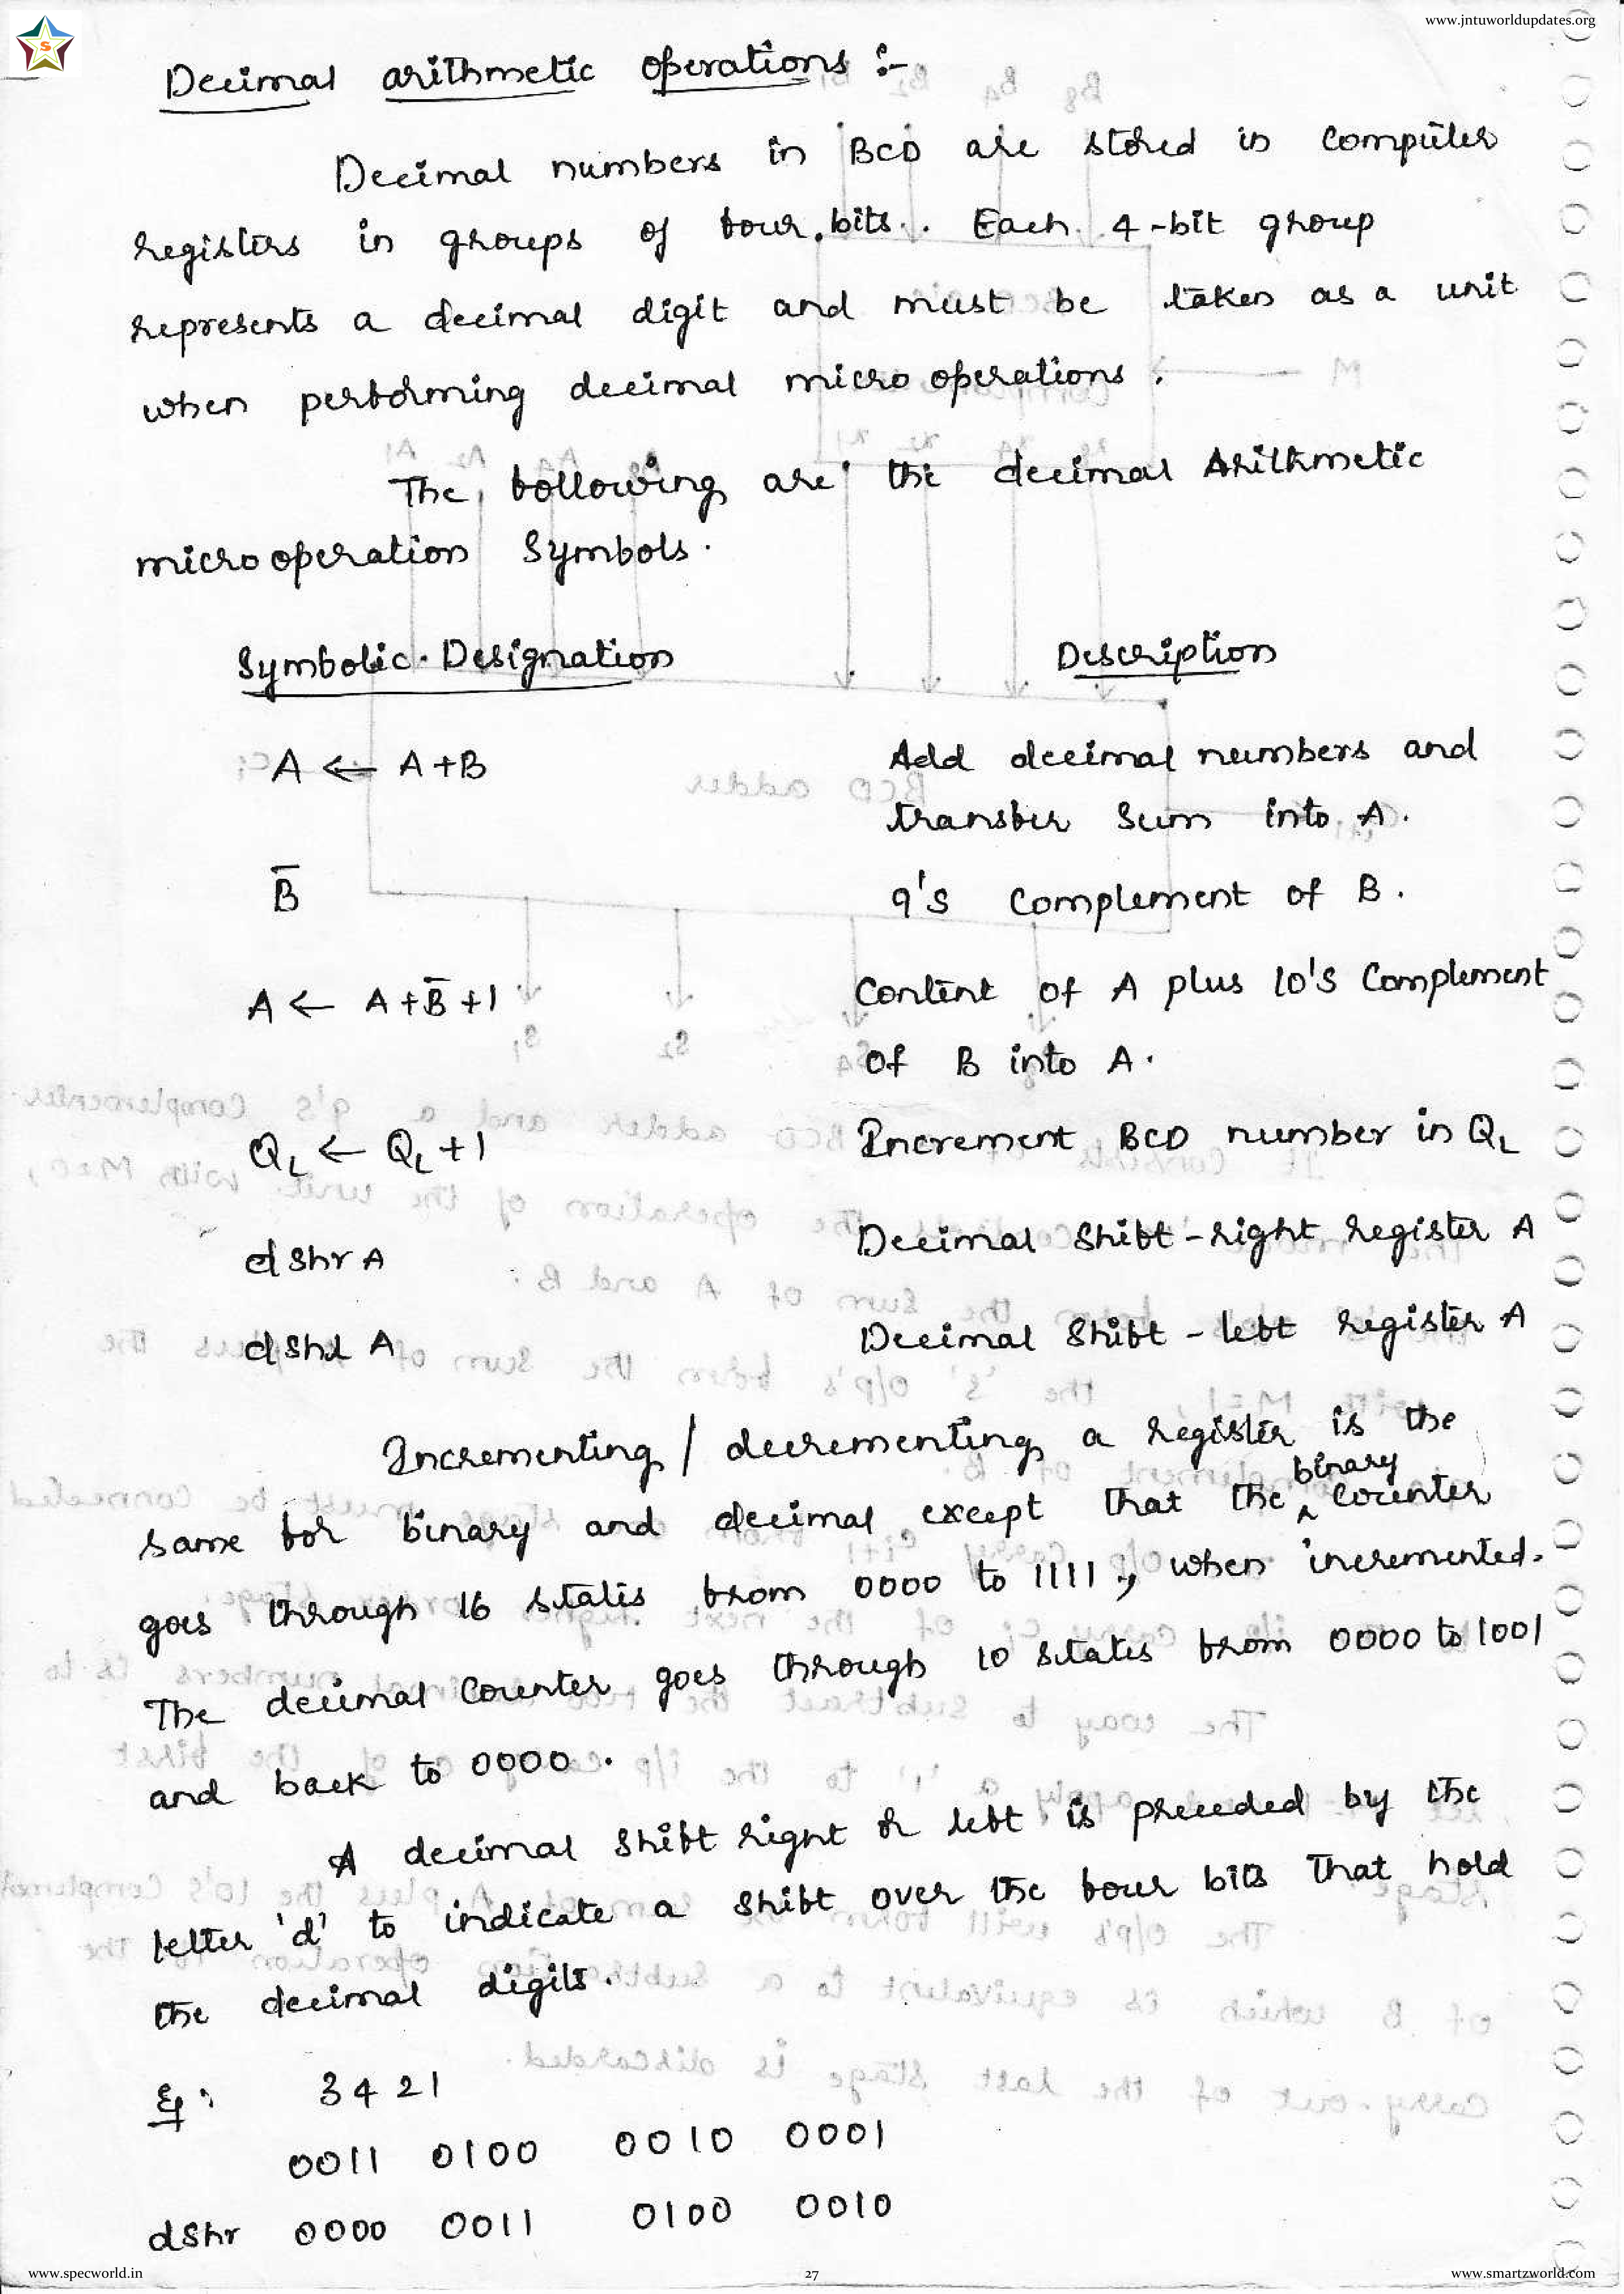 www.jntuworldupdates.org
S
Decimal arithmetic operations :-
Decimal numbers in BCD are stored in computer
registers in groups of four bits. Each 4-bit group
represents a decimal digit and must be taken as a unit
when performing decimal micro operations.
The following are the decimal Arithmetic
micro operation Symbols.
Symbolic Designation Description
A ← A+B Add decimal numbers and
transfer Sum into A.
B̅ 9's Complement of B.
A ← A+B̅+1 Content of A plus 10's Complement
of B into A.
Q_L ← Q_L+1 Increment BCD number in Q_L
dshr A Decimal Shift-right register A
dshl A Decimal Shift-left register A
Incrementing / decrementing a register is the
same for binary and decimal except that the binary counter
goes through 16 states from 0000 to 1111, when incremented.
The decimal Counter goes through 10 states from 0000 to 1001
and back to 0000.
A decimal shift right or left is preceded by the
letter 'd' to indicate a shift over the four bits that hold
the decimal digits.
Eg: 3421
0011 0100 0010 0001
dshr 0000 0011 0100 0010
www.specworld.in 27 www.smartzworld.com